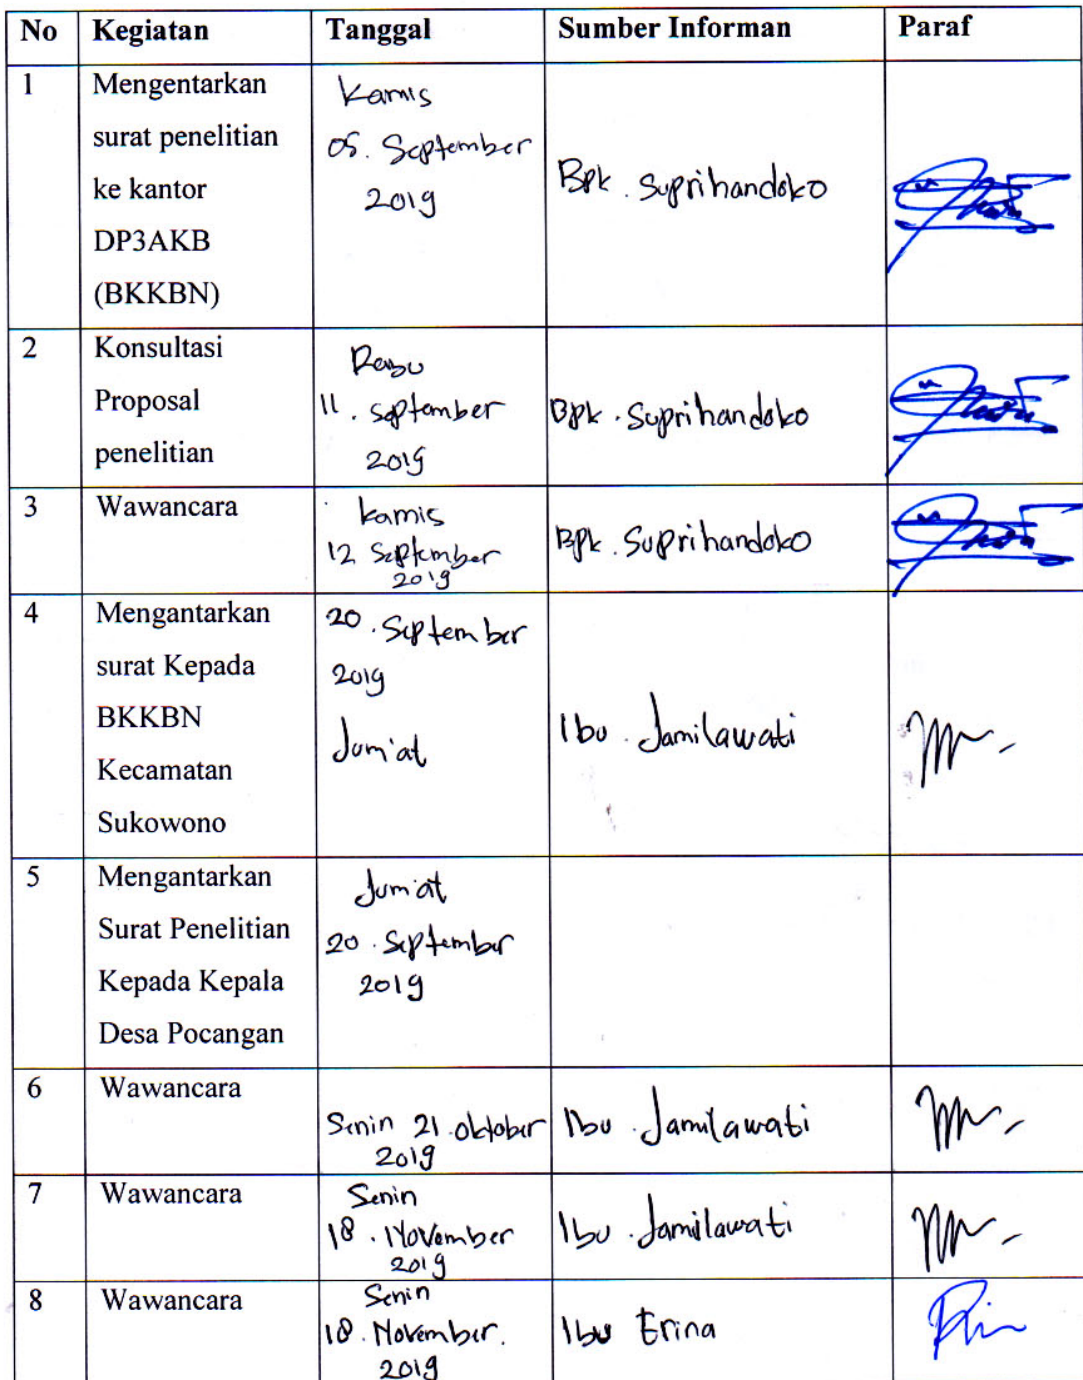 No Kegiatan Tanggal Sumber Informan Paraf
1 Mengentarkan surat penelitian ke kantor DP3AKB (BKKBN)
Kamis
05. September
2019
Bpk. Suprihandoko
2 Konsultasi Proposal penelitian
Rabu
11. September
2019
Bpk. Suprihandoko
3 Wawancara
Kamis
12 September
2019
Bpk. Suprihandoko
4 Mengantarkan surat Kepada BKKBN Kecamatan Sukowono
20. September
2019
Jum'at
Ibu. Jamilawati
5 Mengantarkan Surat Penelitian Kepada Kepala Desa Pocangan
Jum'at
20. September
2019
6 Wawancara
Senin 21. oktober
2019
Ibu. Jamilawati
7 Wawancara
Senin
18. November
2019
Ibu. Jamilawati
8 Wawancara
Senin
18. November.
2019
Ibu Erina